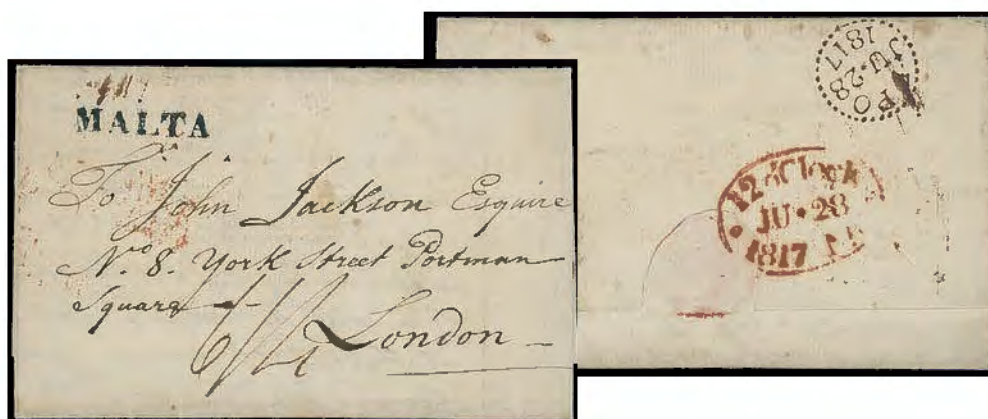 MALTA
To John Jackson Esquire
No. 8. York Street Portman
Square
London
1817
JU·28
12 o'Clock
JU·28
1817